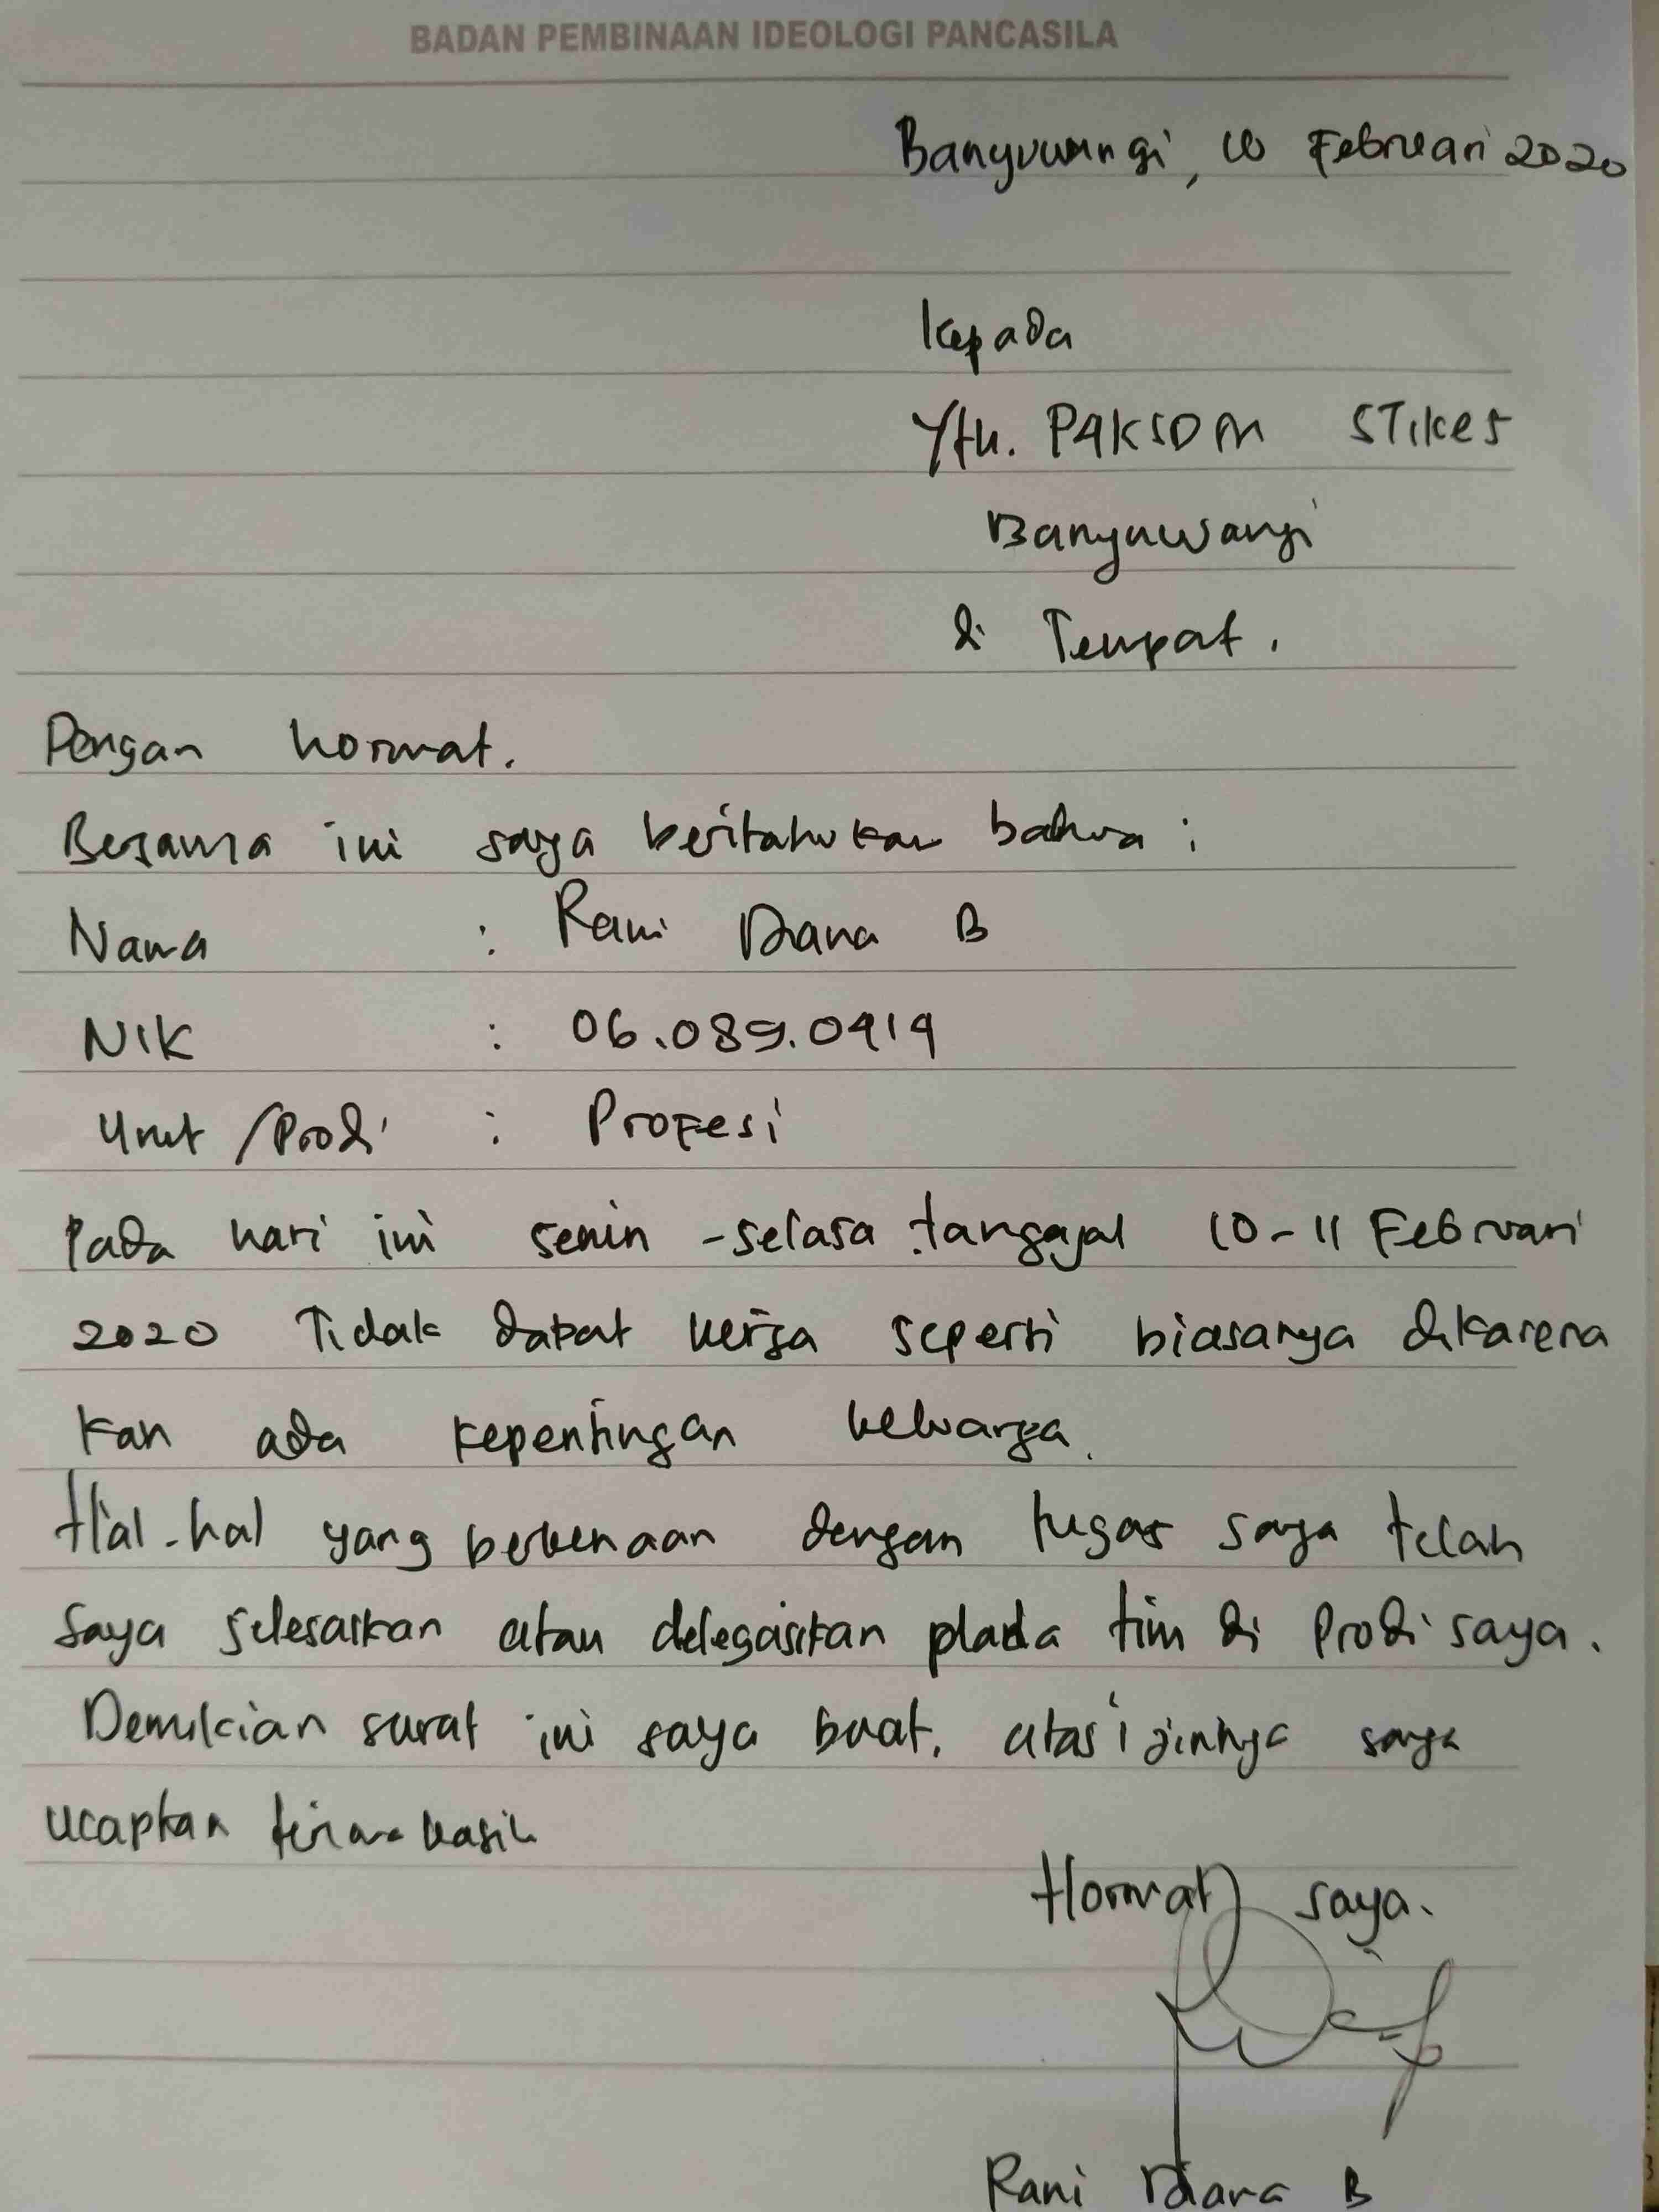 BADAN PEMBINAAN IDEOLOGI PANCASILA
Banyuwangi, 10 Februari 2020
Kepada
Yth. PAKSDM STIKes
Banyuwangi
di Tempat.
Dengan hormat.
Bersama ini saya beritahukan bahwa :
Nama : Rani Diana B
NIK : 06.089.0919
Unit /Prodi : Profesi
Pada hari ini senin - selasa tanggal 10-11 Februari
2020 Tidak dapat kerja seperti biasanya dikarena
kan ada kepentingan keluarga.
Hal-hal yang berkenaan dengan tugas saya telah
saya selesaikan atau delegasikan pada tim di Prodi saya.
Demikian surat ini saya buat, atas ijinnya saya
ucapkan terima kasih
Hormat saya.
Rani Diana B